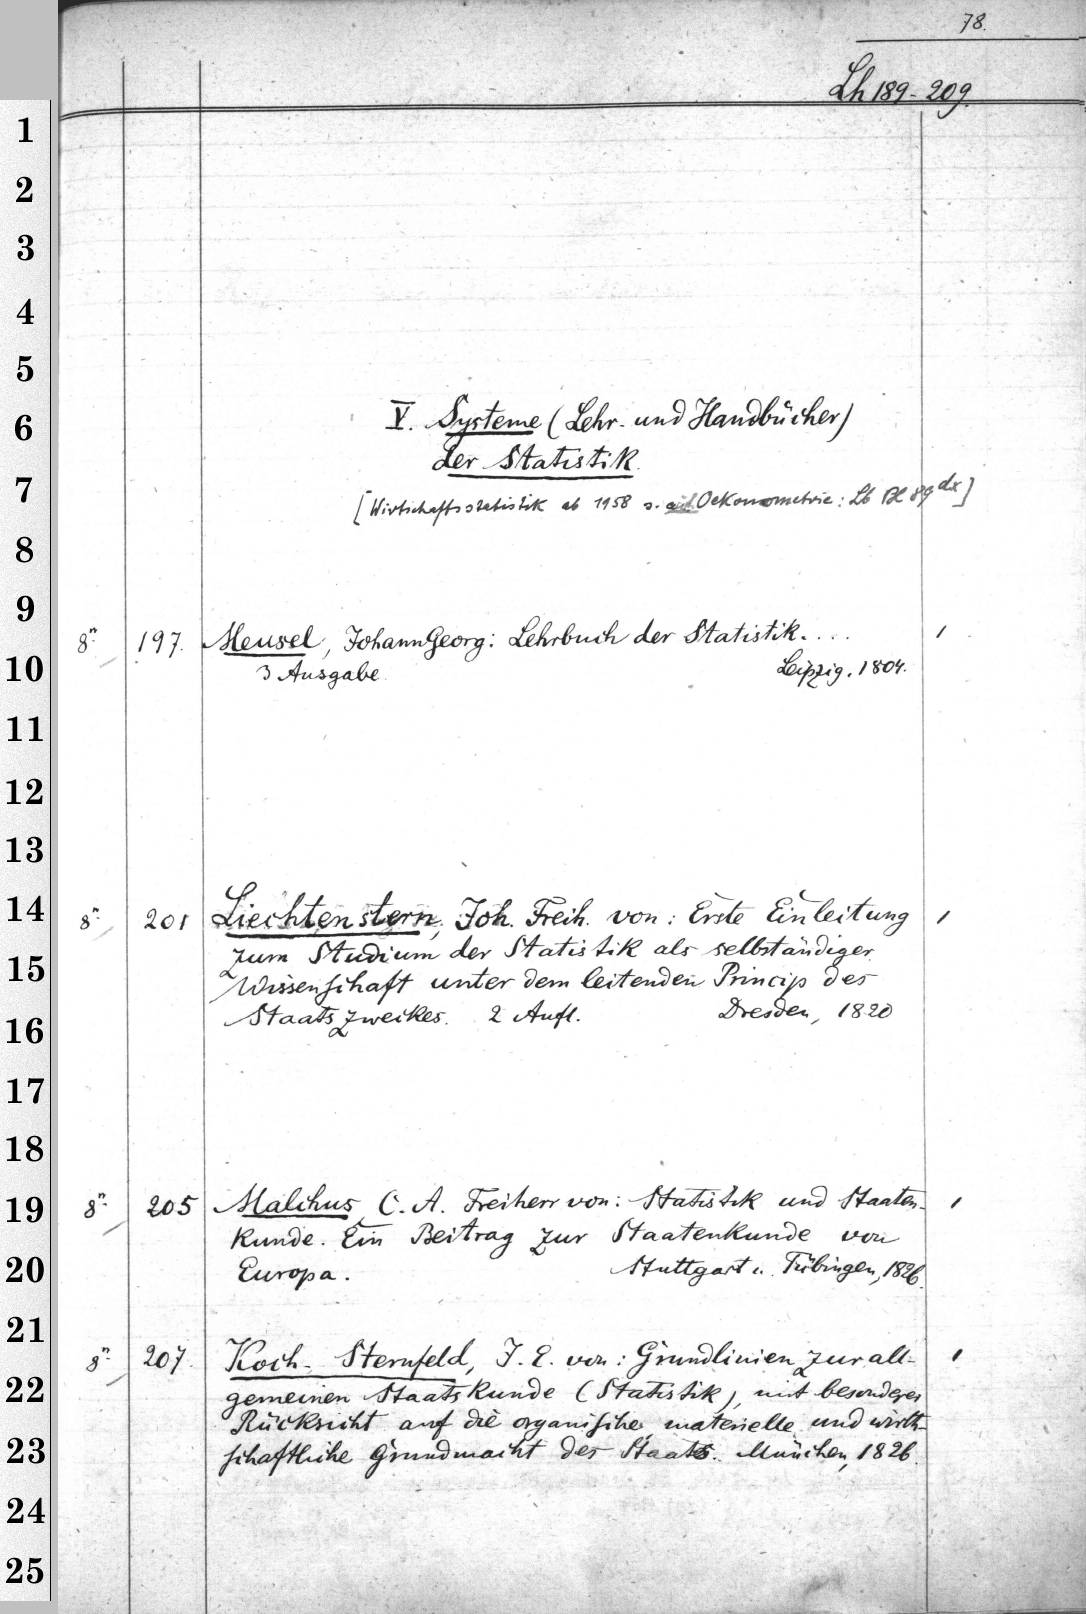 78.
Lh 189-209.
1
2
3
4
5
6
7
8
9
10
11
12
13
14
15
16
17
18
19
20
21
22
23
24
25
V. Systeme (Lehr- und Handbücher)
der Statistik.
[Wirtschaftsstatistik ab 1958 s. auch Oekonometrie: Lb Bl 89 dx]
8n. 197. Meusel, Johann Georg: Lehrbuch der Statistik.... 1
3 Ausgabe. Leipzig, 1804.
8n. 201 Liechtenstern, Joh. Freih. von: Erste Einleitung 1
zum Studium der Statistik als selbständiger
Wissenschaft unter dem leitenden Princip des
Staatszweckes. 2 Aufl. Dresden, 1820
8n. 205 Malchus, C. A. Freiherr von: Statistik und Staaten- 1
kunde. Ein Beitrag zur Staatenkunde von
Europa. Stuttgart u. Tübingen, 1826.
8n. 207. Koch-Sternfeld, J. E. von: Grundlinien zur all- 1
gemeinen Staatskunde (Statistik), mit besonderer
Rücksicht auf die organische, materielle und wirth-
schaftliche Grundmacht des Staats. München, 1826.